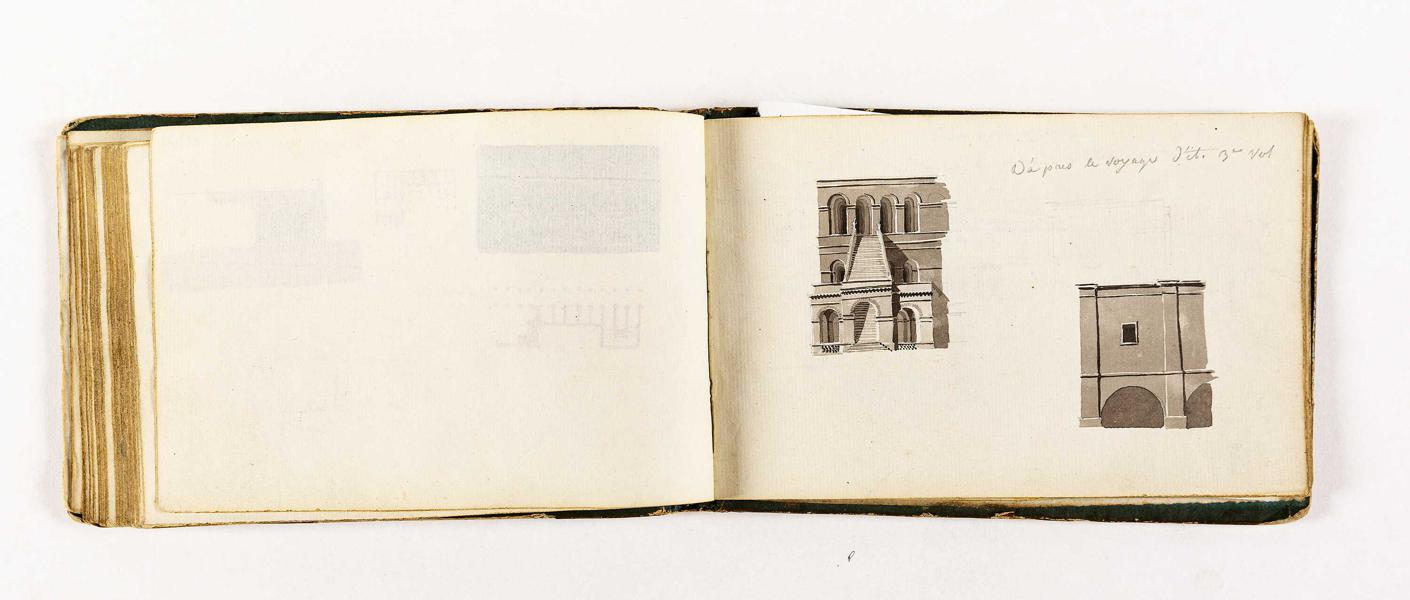 D'après le voyage d'it. 3me Vol